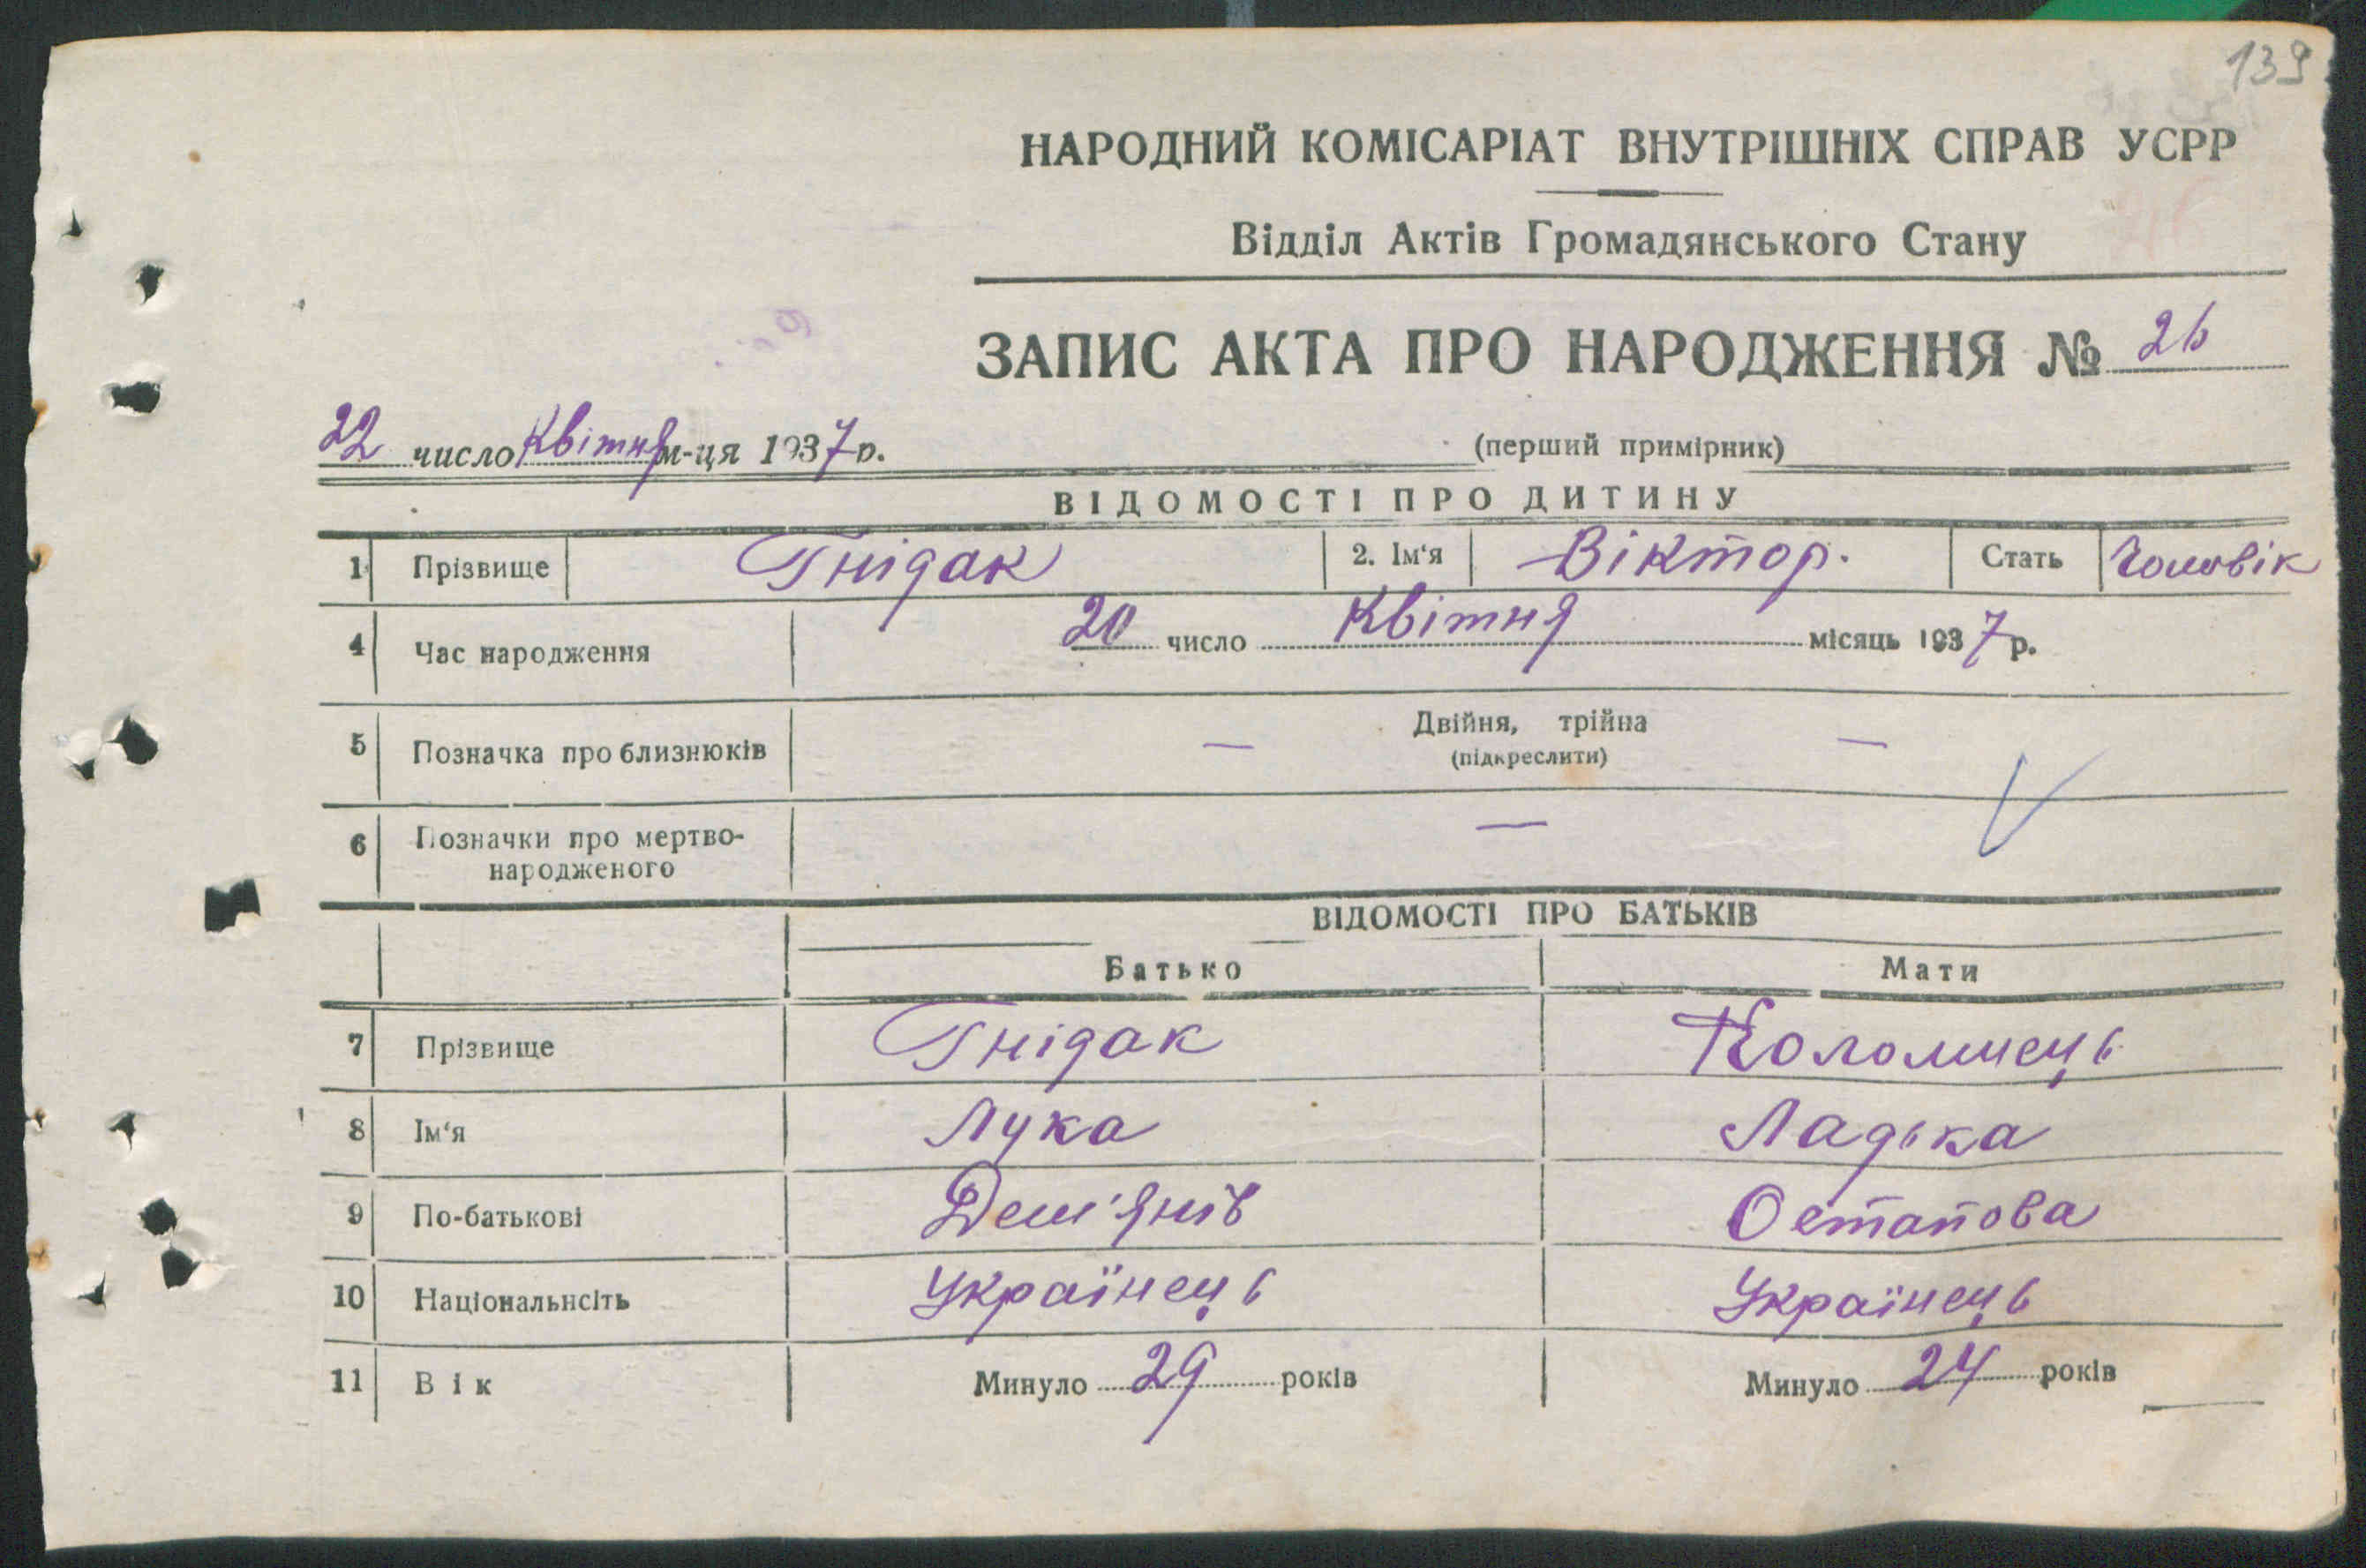 139
НАРОДНИЙ КОМІСАРІАТ ВНУТРІШНІХ СПРАВ УСРР
Відділ Актів Громадянського Стану
ЗАПИС АКТА ПРО НАРОДЖЕННЯ № 26
22 число Квітня м-ця 1937 р.
(перший примірник)
ВІДОМОСТІ ПРО ДИТИНУ
1 Прізвище Гнідак 2. Ім'я Віктор. Стать Чоловік
4 Час народження 20 число Квітня місяць 1937 р.
5 Позначка про близнюків — Двійня, трійна —
(підкреслити)
6 Позначки про мертво-
народженого —
ВІДОМОСТІ ПРО БАТЬКІВ
Батько Мати
7 Прізвище Гнідак Коломиець
8 Ім'я Лука Ладька
9 По-батькові Дем'янів Остапова
10 Національнсіть Українець Українець
11 Вік Минуло 29 років Минуло 24 років